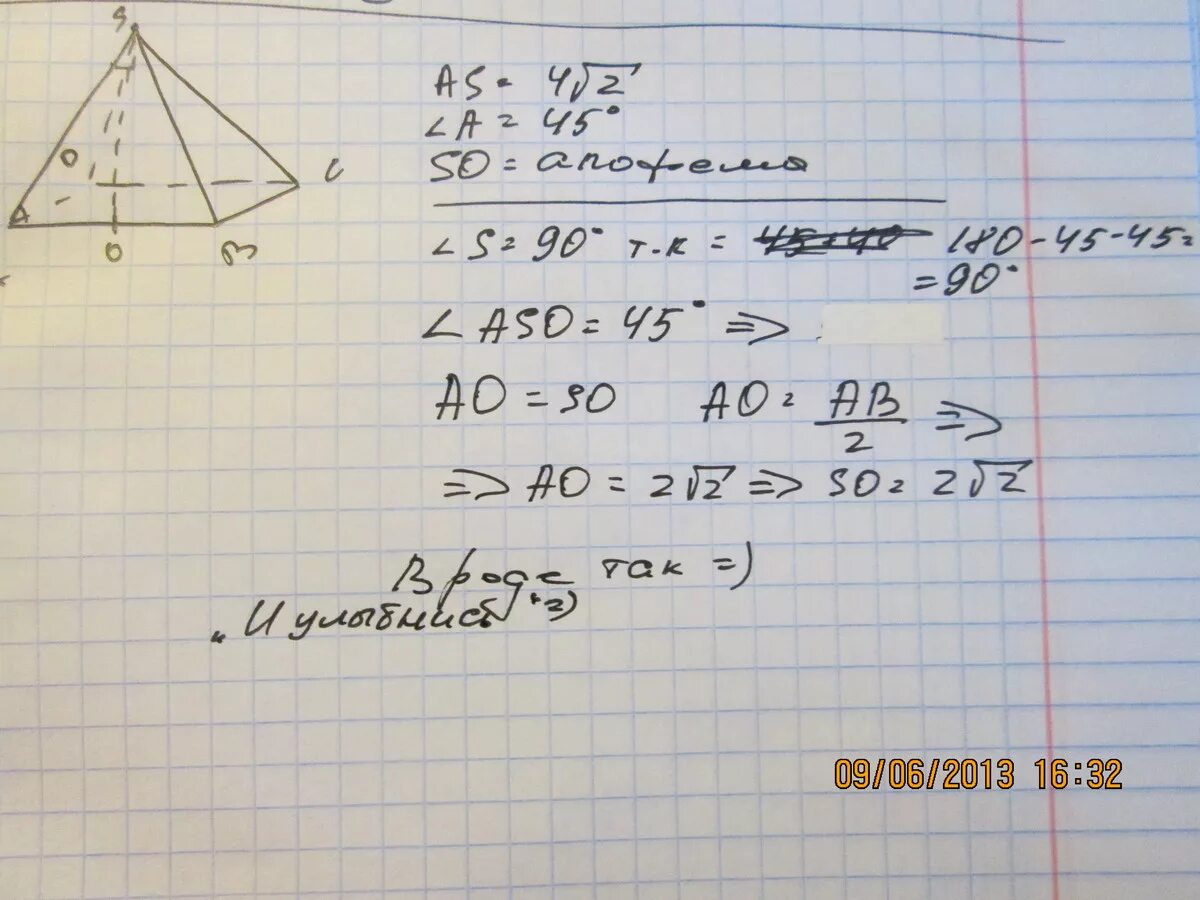 S
O
C
A
O
B
AS = 4√2
∠A = 45°
SO = апофема
∠S = 90° т.к = 180 - 45 - 45 =
= 90°
∠ASO = 45° =>
AO = SO AO = AB/2 =>
=> AO = 2√2 => SO = 2√2
В роде так =)
"И улыбнись" =)
09/06/2013 16:32